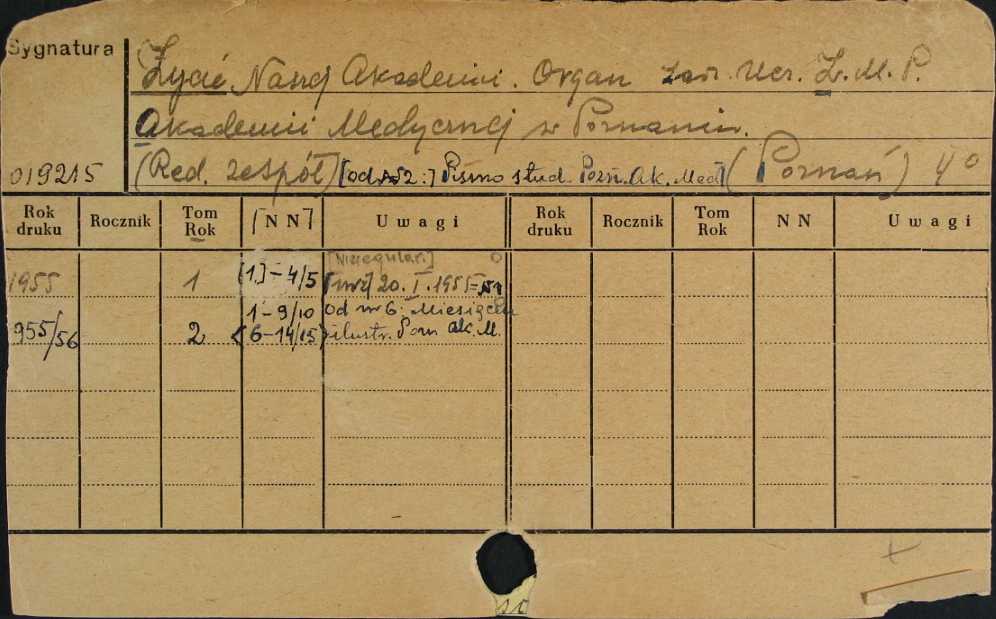 Sygnatura
Życie Naszej Akademii. Organ Zarz. Ucz. Z.M.P.
Akademii Medycznej w Poznaniu.
019215 (Red. zespół) [od №2:] Pismo stud. Pozn. Ak. Med] (Poznań) 4°
Rok druku Rocznik Tom Rok [NN] Uwagi Rok druku Rocznik Tom Rok NN Uwagi
[Nieregular.]
1955 1 [1]-4/5 20. I. 1955 = №1
1-9/10 Od nr 6: Miesięczn
955/56 2 <6-14/15> ilustr. Pozn. Ak. M.